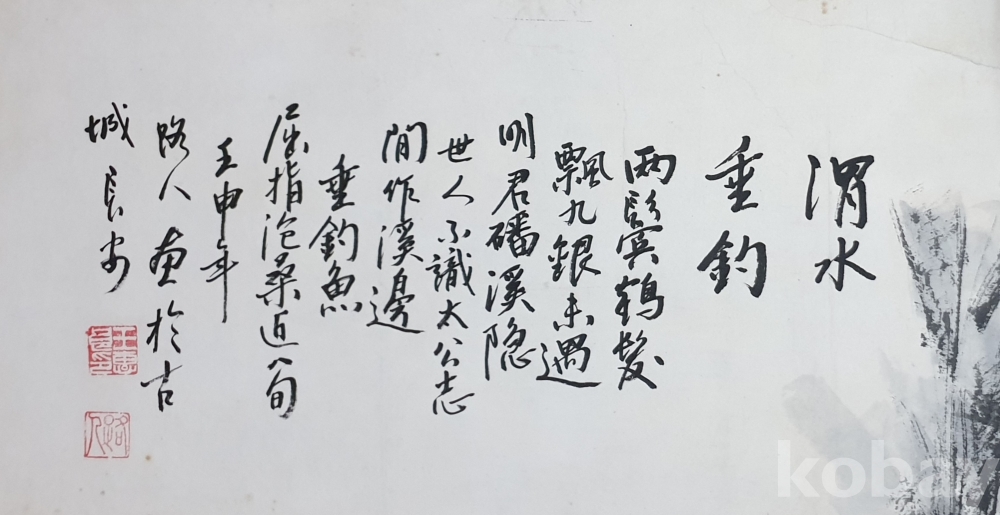 渭水
垂釣
兩鬢冥鶴髮
飄九銀未遇
明君磻溪隐
世人不識太公志
間作溪邊
垂釣魚
屈指沧桑近八旬
壬申年
路人画於古
城長安
路人
kobay